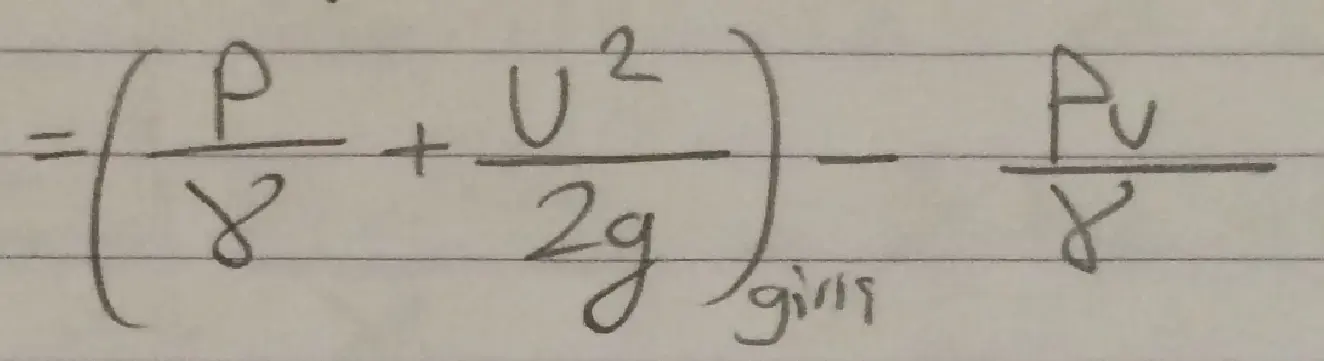 = (P/γ + U²/2g)giriş − Pv/γ